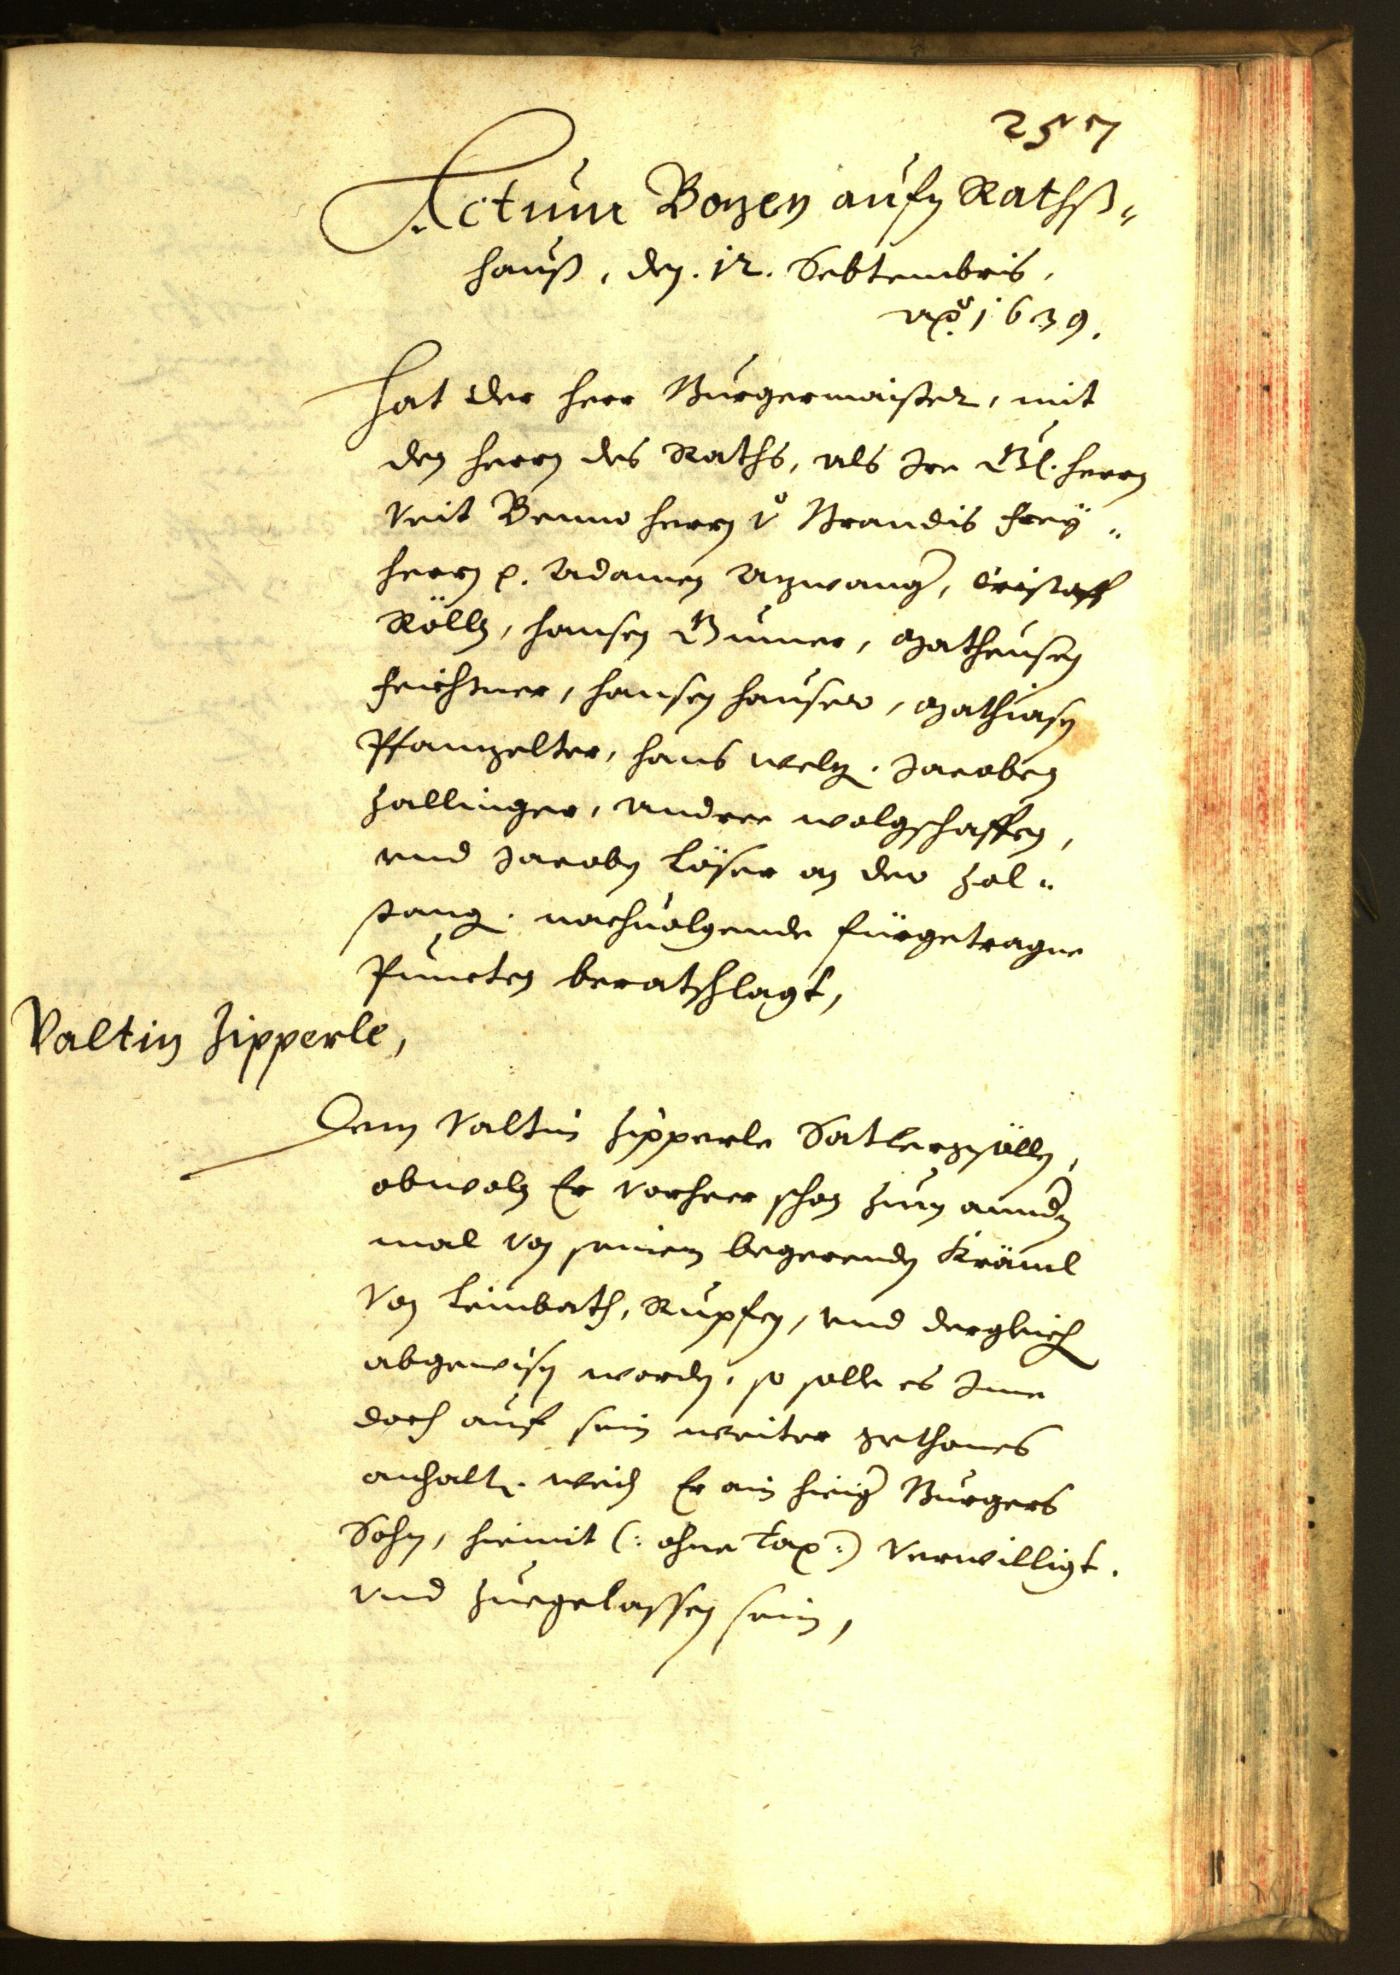 257
Actum Bozen aufn Rathß„
hauß, den. 12. Sebtembris,
Ao. 1639.
Hat der Herr Burgermaister, mit
den Herrn des Raths, als Ire Gl. Herrn
Veit Benno Herrn v Brandis Frey„
herrn p. Adamen Azwang, Cristoff
Röllz, Hansen Gumer, Matheusen
Feichtner, Hansen Hauser, Mathiasn
Pfanzelter, Hans Welz. Jacoben
Zallinger, Andree Wolgschaffen,
vnd Jacobn Löser an der Zol„
stang. nachuolgende fürgetragne
Puncten beratschlagt,
Valtin Zipperle,
Dem Valtin Zipperle Satlergsölln,
obwoln Er vorheer schon zum anndn
mal von seinem begerenden Kräml
von Leinbath, Rupfen, vnd dergleich
abgewisn worden, so solle es Ime
doch auf sein weiter gethones
anhalt. weil Er ain hieig Burgers
Sohn, hiemit (: ohne Tax :) verwilligt.
vnd zuegelassen sein,